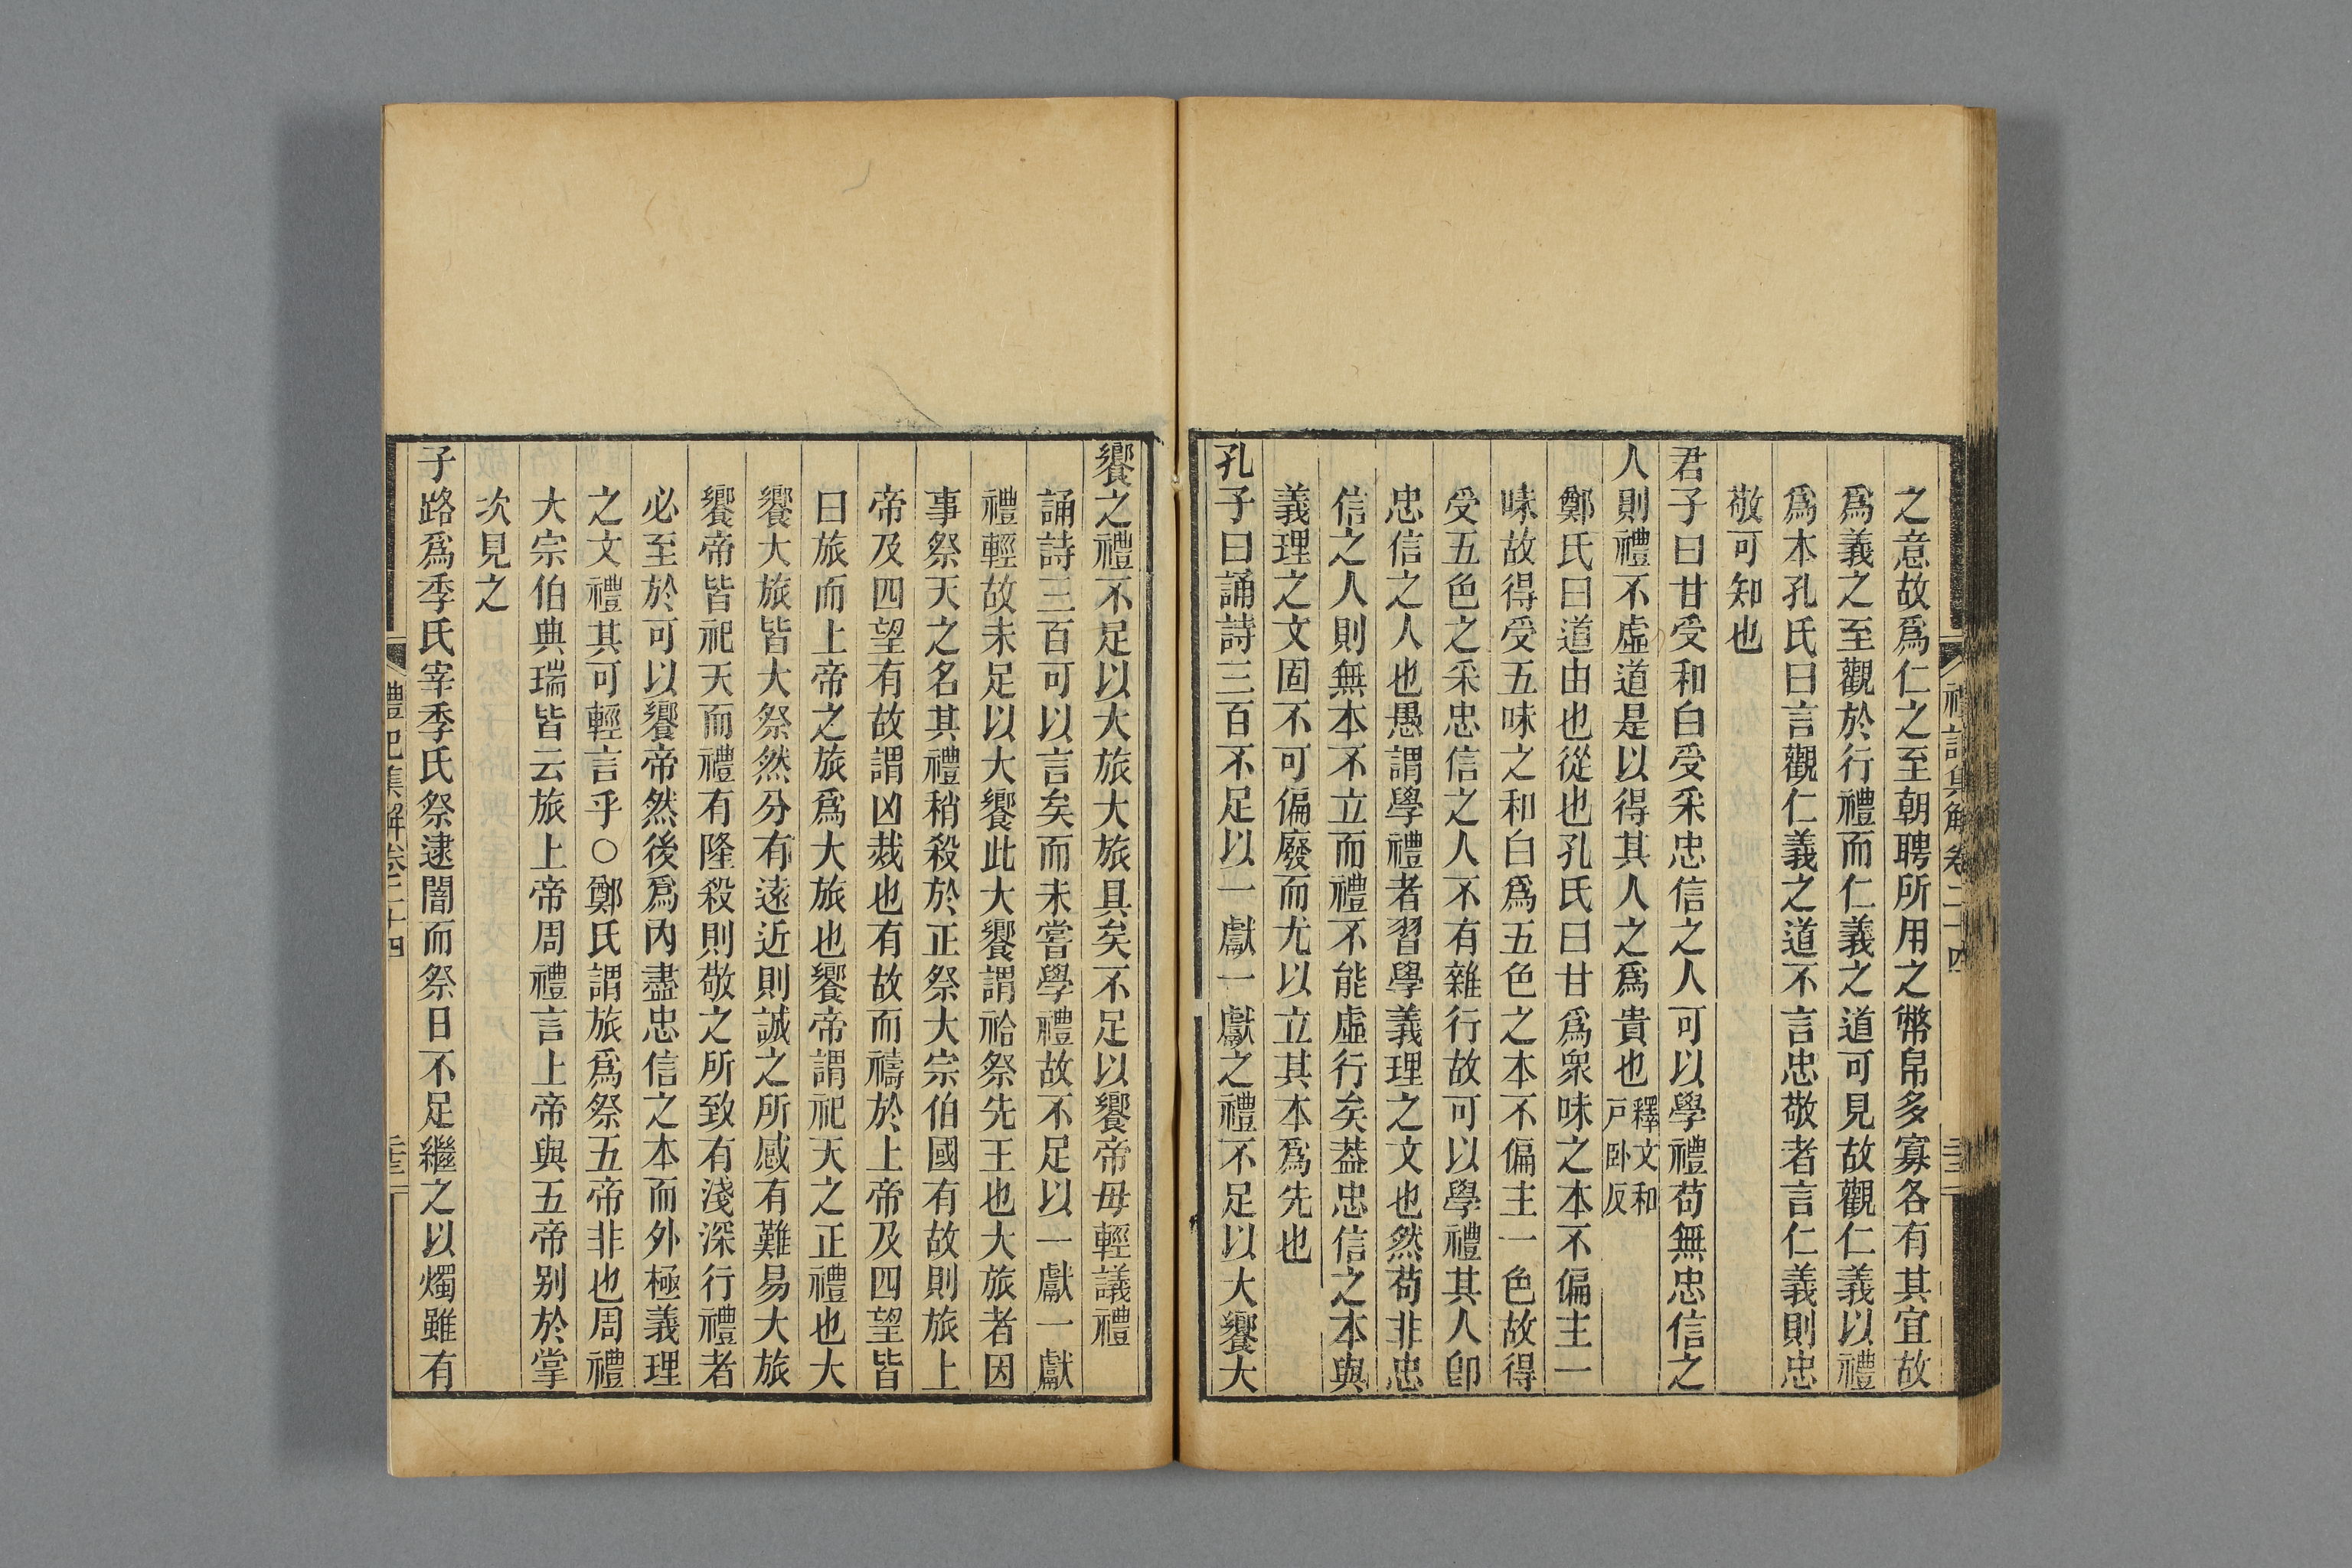 禮記集解卷二十四
之意故爲仁之至朝聘所用之幣帛多寡各有其宜故
爲義之至觀於行禮而仁義之道可見故觀仁義以禮
爲本孔氏曰言觀仁義之道不言忠敬者言仁義則忠
敬可知也
君子曰甘受和白受采忠信之人可以學禮苟無忠信之
人則禮不虛道是以得其人之爲貴也釋文和戸卧反
鄭氏曰道由也從也孔氏曰甘爲衆味之本不偏主一
味故得受五味之和白爲五色之本不偏主一色故得
受五色之采忠信之人不有雜行故可以學禮其人卽
忠信之人也愚謂學禮者習學義理之文也然苟非忠
信之人則無本不立而禮不能虛行矣葢忠信之本與
義理之文固不可偏廢而尤以立其本爲先也
孔子曰誦詩三百不足以一獻一獻之禮不足以大饗大
饗之禮不足以大旅大旅具矣不足以饗帝毋輕議禮
誦詩三百可以言矣而未嘗學禮故不足以一獻一獻
禮輕故未足以大饗此大饗謂祫祭先王也大旅者因
事祭天之名其禮稍殺於正祭大宗伯國有故則旅上
帝及四望有故謂凶烖也有故而禱於上帝及四望皆
曰旅而上帝之旅爲大旅也饗帝謂祀天之正禮也大
饗大旅皆大祭然分有遠近則誠之所感有難易大旅
饗帝皆祀天而禮有隆殺則敬之所致有淺深行禮者
必至於可以饗帝然後爲內盡忠信之本而外極義理
之文禮其可輕言乎○鄭氏謂旅爲祭五帝非也周禮
大宗伯典瑞皆云旅上帝周禮言上帝與五帝别於掌
次見之
子路爲季氏宰季氏祭逮闇而祭日不足繼之以燭雖有
禮記集解卷二十四